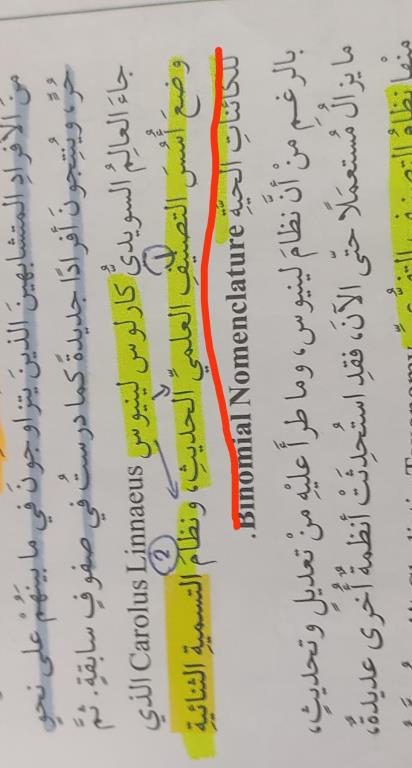 منَ الأفرادِ المتشابهينَ الذينَ يتزاوجونَ في ما بينَهُمْ على نحوٍ
حُرٍّ، ويُنتِجونَ أفرادًا جديدةً كما درستَ في صفوفٍ سابقةٍ. ثمَّ
جاءَ العالِمُ السويديُّ كارلوس لينيوس Carolus Linnaeus الذي
وضعَ أُسُسَ التصنيفِ العلميِّ الحديثِ، ونظامَ التسميةِ الثنائيةِ
1 2
للكائناتِ الحيّةِ Binomial Nomenclature.
بالرغمِ منْ أنَّ نظامَ لينيوس، وما طرأَ عليْهِ منْ تعديلٍ وتحديثٍ،
ما يزالُ مُستعمَلًا حتّى الآنَ، فقدِ استُحدِثَتْ أنظمةٌ أُخرى عديدةٌ،
منْها نظامُ التصنيفِ